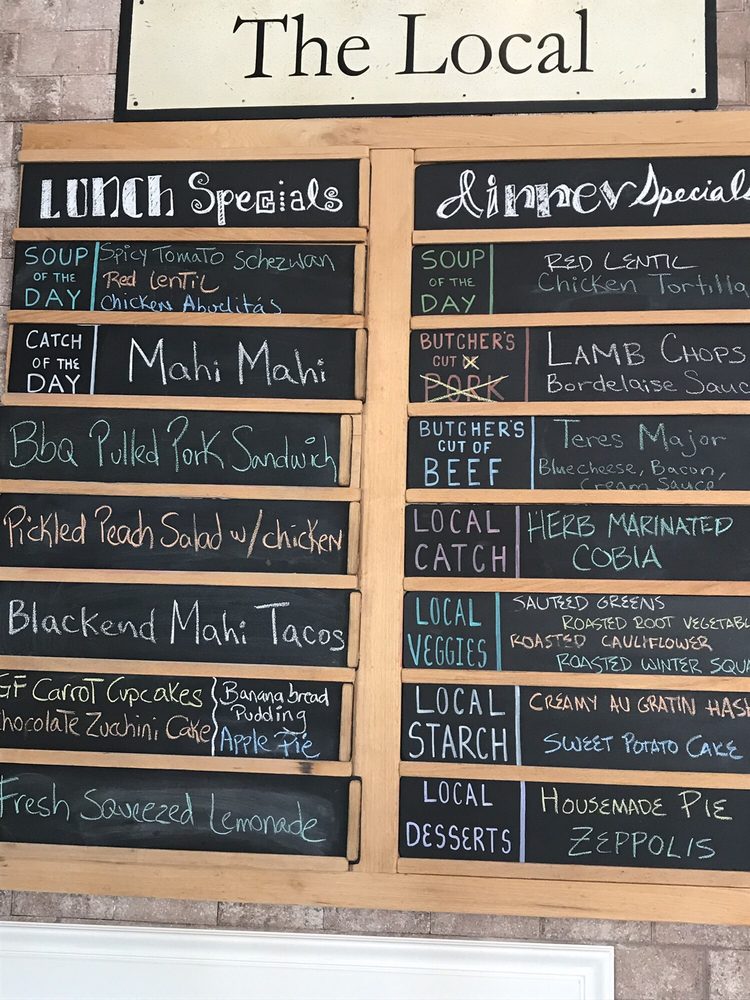 The Local
LUNCH Specials
SOUP OF THE DAY
Spicy Tomato Schezwan
Red Lentil
Chicken Abuelitás
CATCH OF THE DAY
Mahi Mahi
Bbq Pulled Pork Sandwich
Pickled Peach Salad w/chicken
Blackend Mahi Tacos
GF Carrot Cupcakes
Chocolate Zucchini Cake
Banana bread
Pudding
Apple Pie
Fresh Squeezed Lemonade
dinner Specials
SOUP OF THE DAY
RED LENTIL
Chicken Tortilla
BUTCHER'S
CUT
PORK
LAMB CHOPS
Bordelaise Sauc
BUTCHER'S
CUT OF
BEEF
Teres Major
Bluecheese, Bacon,
Cream Sauce
LOCAL
CATCH
HERB MARINATED
COBIA
LOCAL
VEGGIES
SAUTEED GREENS
ROASTED ROOT VEGETABL
ROASTED CAULIFLOWER
ROASTED WINTER SQUA
LOCAL
STARCH
CREAMY AU GRATIN HASH
SWEET POTATO CAKE
LOCAL
DESSERTS
HOUSEMADE PIE
ZEPPOLIS